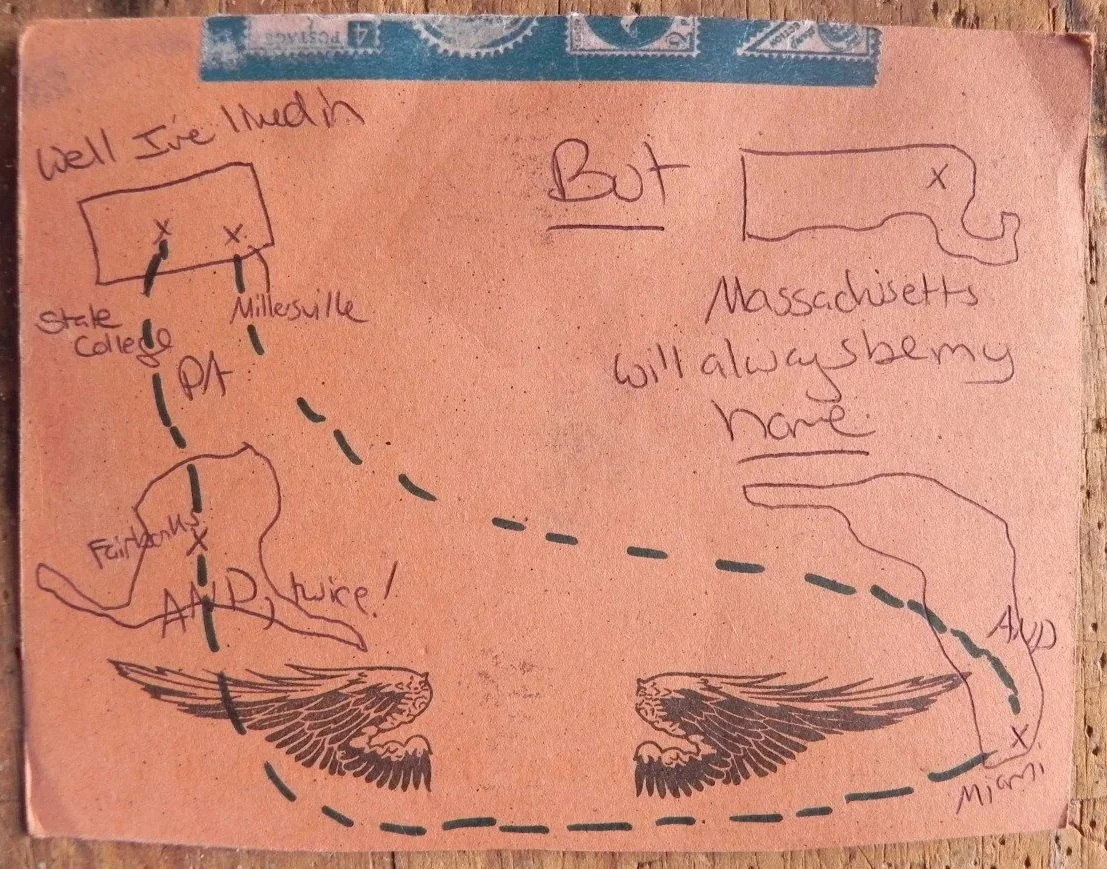 Well I've lived in
State
College
Millersville
PA
Fairbanks
AND, twice!
But
Massachusetts
will always be my
home
AND
Miami
POSTAGE
4